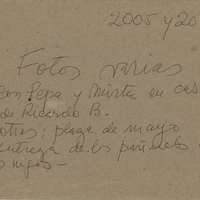 2005 y 20
Fotos varias
con Pepa y Mirta en cas
de Ricardo B.
otras: plaza de mayo
entrega de los pañuelos
s hijos —